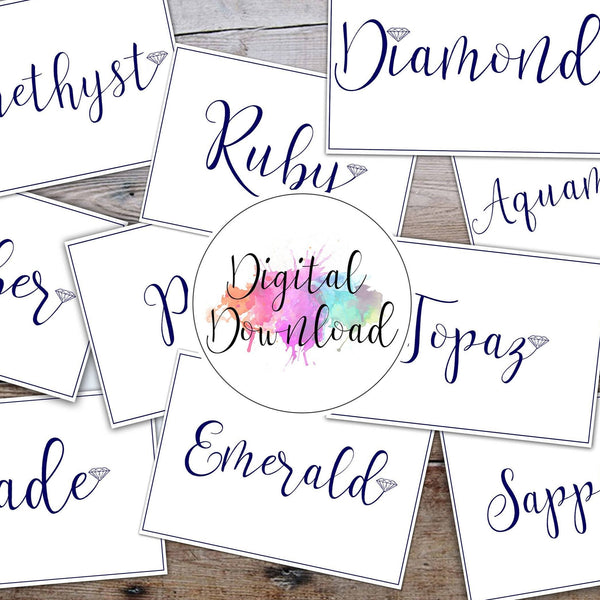 Diamond
methyst
Ruby
Aquam
ber
P
Digital
Download
Topaz
ade
Emerald
Sapp